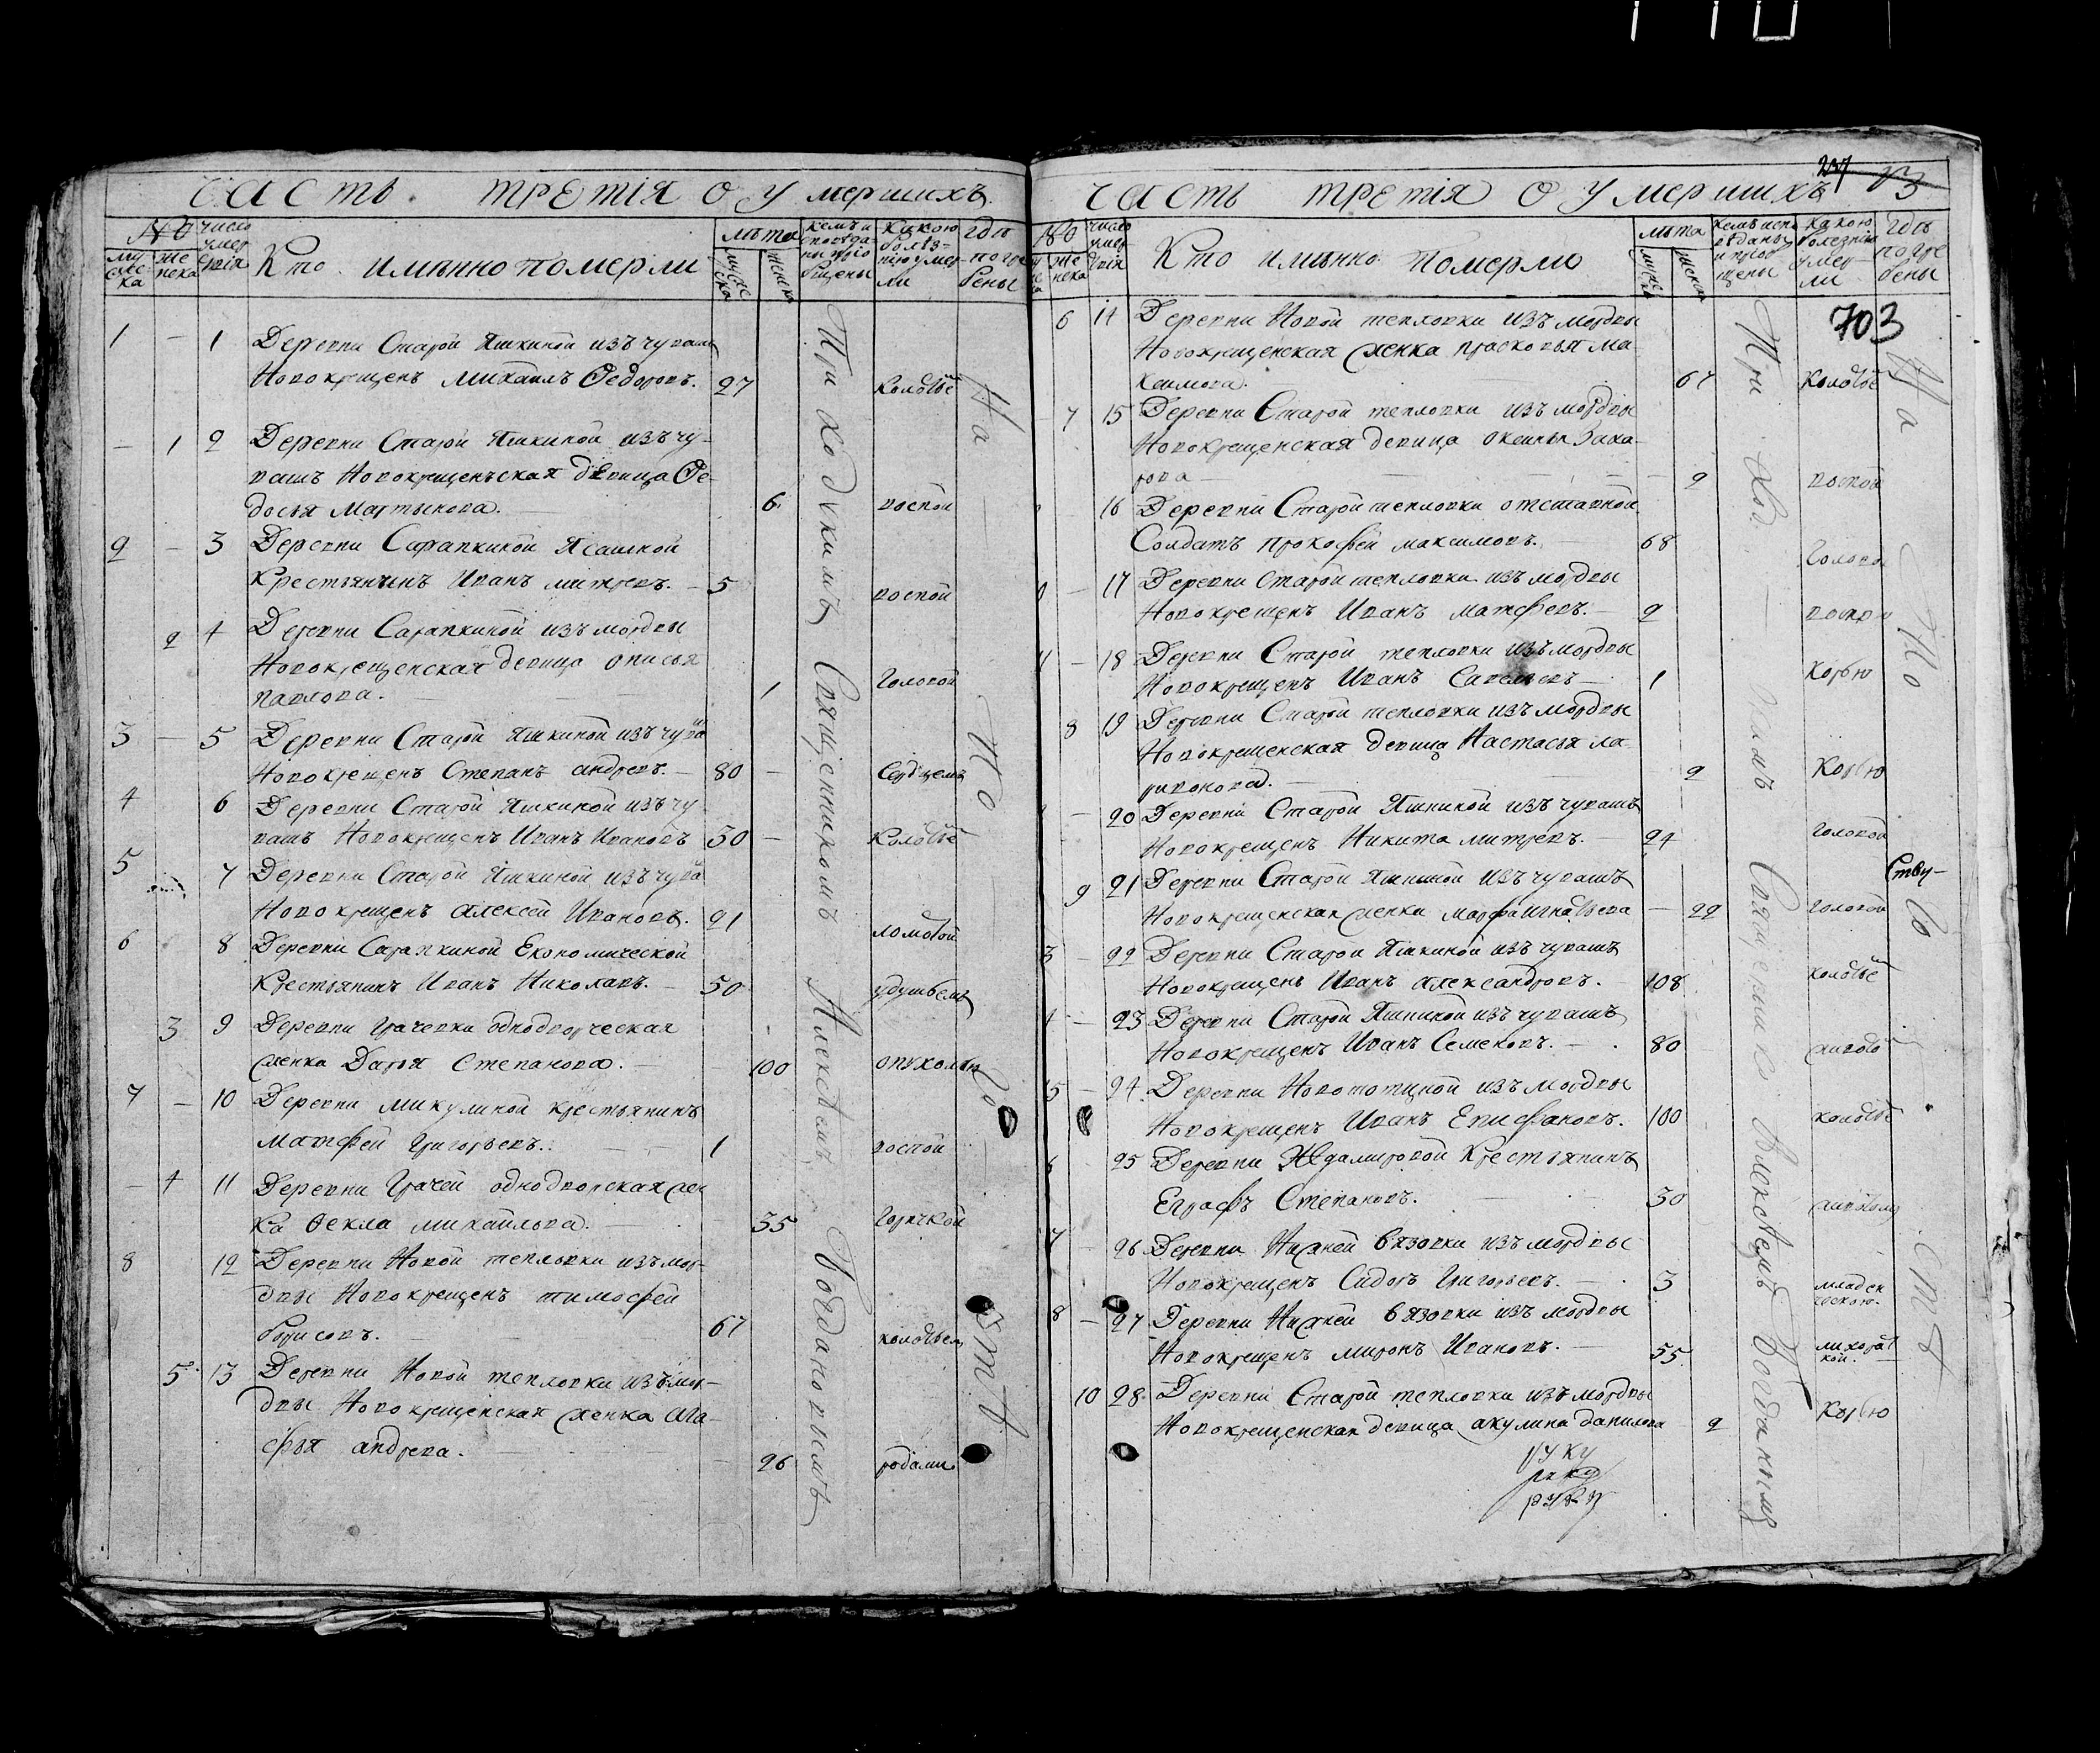 Часть третія о умершихъ
№
число умертвія
мужеска
женска
Кто имянно померли
лѣта
мужеска
женска
кемъ исповѣданы и приобщены
какою болѣзнию умерли
гдѣ погребены
1 – 1 Деревни Старой Яшкиной изъ чувашъ
Новокрещенъ Михаилъ Федоровъ. 27 колотье
– 1 2 Деревни Старой Яшкиной изъ чу-
вашъ Новокрещенъская девица Фе-
досья Мартынова. 6 воспой
2 – 3 Деревни Сарапкиной Ясашной
Крестьянинъ Иванъ Митревъ. – 5 воспой
2 4 Деревни Сарапкиной изъ мордвы
Новокрещенская девица Описья
Павлова. 1 Головой
3 – 5 Деревни Старой Яшкиной изъ чува
Новокрещенъ Степанъ андревъ. – 80 – Сердцемъ
4 6 Деревни Старой Яшкиной изъ чу-
вашъ Новокрещенъ Иванъ Ивановъ 30 – Колотье
5 7 Деревни Старой Яшкиной изъ чува
Новокрещенъ Алексей Ивановъ. 21 ломотой
6 8 Деревни Сарапкиной Економической
Крестьянинъ Иванъ Николаевъ. – 50 удушьемъ
3 9 Деревни Грачевки однодворческая
женка Дарья Степанова. – 100 опухолью
7 – 10 Деревни микулиной крестьянинъ
Матфей Григорьевъ. 1 воспой
– 4 11 Деревни Грачей однодворская жен
ка Фекла михайлова. – 35 Горячкой
8 12 Деревни Новой тепловки изъ мор-
двы Новокрещенъ тимофей
борисовъ. – 67 колотьемъ
5 13 Деревни Новой тепловки изъ мор-
двы Новокрещенская женка Ага-
фья андрева. 26 родами
Приходскимъ Священникомъ Алексѣемъ Богдановымъ
На то Ство
Часть третія о умершихъ
237
13
№
число умертвія
женска
Кто имянно померли
лѣта
мужеска
женска
кемъ исповѣданы и приобщены
какою болезнию умерли
гдѣ погребены
703
6 14 Деревни Новой тепловки изъ мордвы
Новокрещенская женка прасковья ма-
ксимова. 67 колотье
7 15 Деревни Старой тепловки изъ мордвы
Новокрещенская девица Оксинья Заха-
рова – 2 воспой
16 Деревни Старой тепловки отставной
Солдатъ Прокофей максимовъ. – 68 Голово
– 17 Деревни Старой тепловки изъ мордвы
Новокрещенъ Иванъ матфеевъ. – 2
– 18 Деревни Старой тепловки изъ мордвы
Новокрещенъ Иванъ Савельевъ – 1 Корью
8 19 Деревни Старой тепловки изъ мордвы
Новокрещенская девица Настасья ла-
ривонова. 2 Корью
– 20 Деревни Старой Яшкиной изъ чувашъ
Новокрещенъ Никита митревъ. 24 головой
9 21 Деревни Старой Яшкиной изъ чувашъ
Новокрещенская женка марфа Игнатьева – 22 головой
Ству-
3 – 22 Деревни Старой Яшкиной изъ чувашъ
Новокрещенъ Иванъ Александровъ. – 108 колотье
4 – 23 Деревни Старой Яшкиной изъ чувашъ
Новокрещенъ Иванъ Семеновъ. – 80
5 – 24 Деревни Новотоцкой изъ мордвы
Новокрещенъ Иванъ Епифановъ. 100 колотье
6 25 Деревни Крестьянинъ
Еграфъ Степановъ. 30
7 26 Деревни Нижней вязовки изъ мордвы
Новокрещенъ Сидоръ Григорьевъ. – 3 младен
ческою.
8 – 27 Деревни Нижней вязовки изъ мордвы
Новокрещенъ миронъ Ивановъ. – 55 лихорат
кой.
10 28 Деревни Старой тепловки изъ мордвы
Новокрещенская девица акулина данилова 2 Корью
Приходскимъ Священникомъ Алексѣемъ Богдановымъ